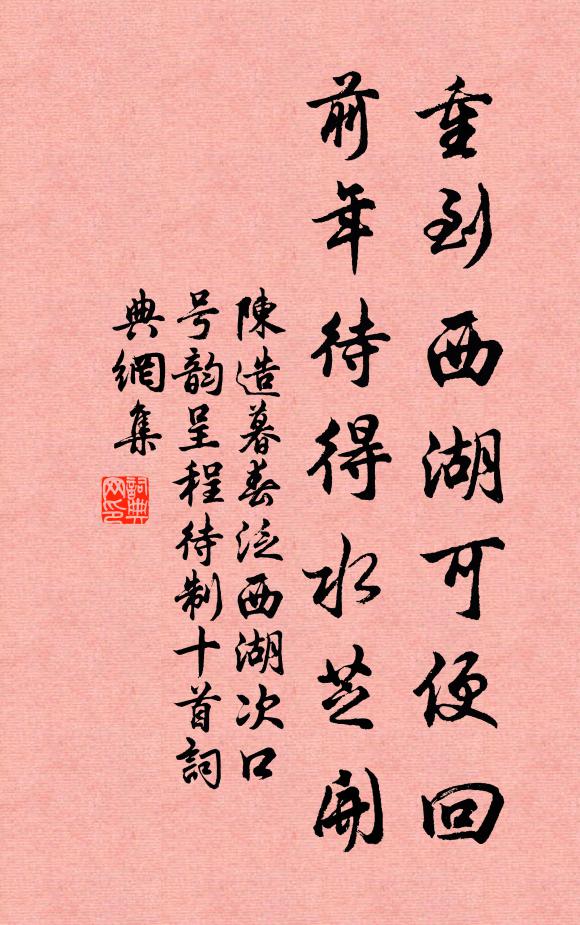 重到西湖可便回
前年待得水芝開
陳造暮春泛西湖次口
号韵呈程待制十首詞
典網集
詞典
网印